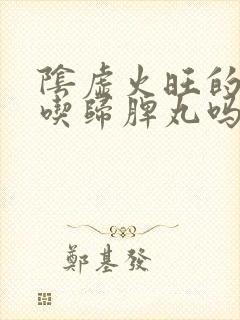 陰虛火旺的
喫歸脾丸吗
鄭基發